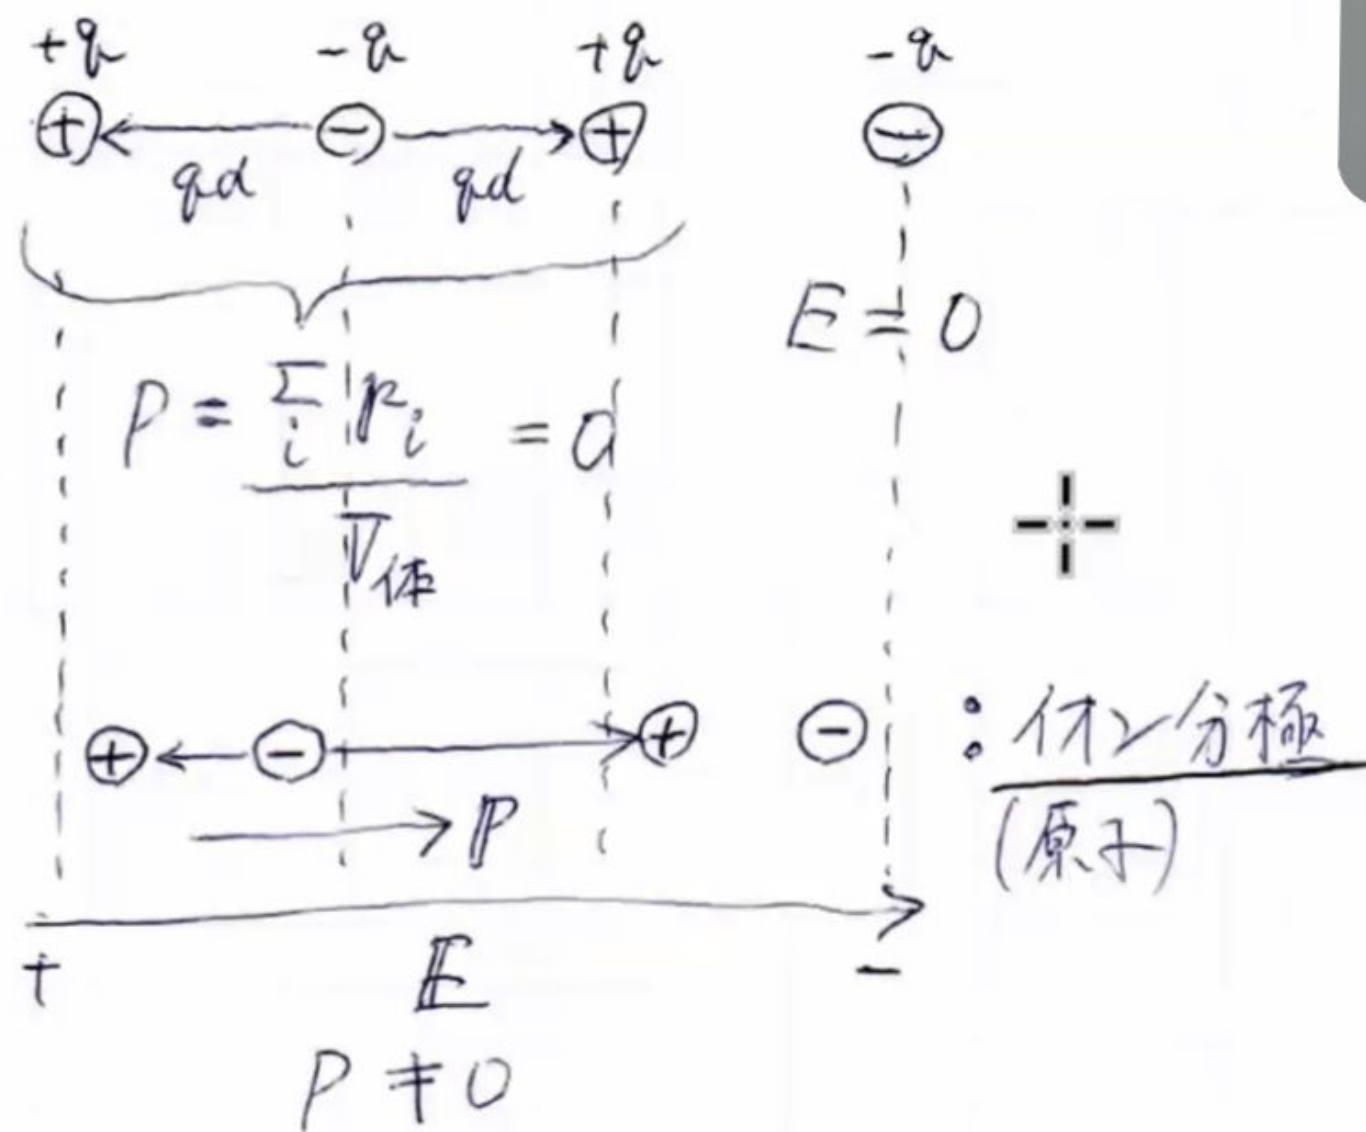 +q -q +q -q
⊕ ⊖ ⊕ ⊖
qd qd
E = 0
P = Σ_i p_i / V体 = 0
⊕ ⊖ ⊕ ⊖ : イオン分極
(原子)
P
+ E -
P ≠ 0